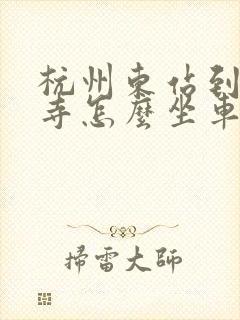 杭州東站到
寺怎麼坐車
掃雷大師